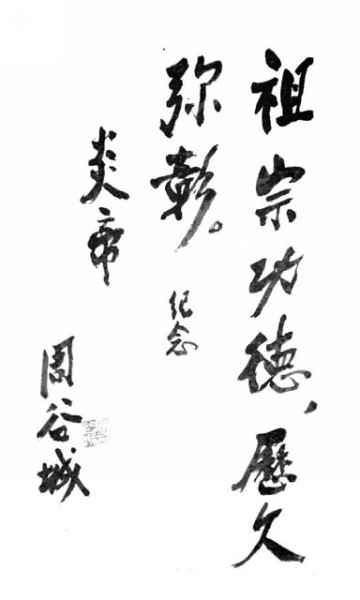 祖宗功德，歷久
弥彰。
纪念
炎帝
周谷城